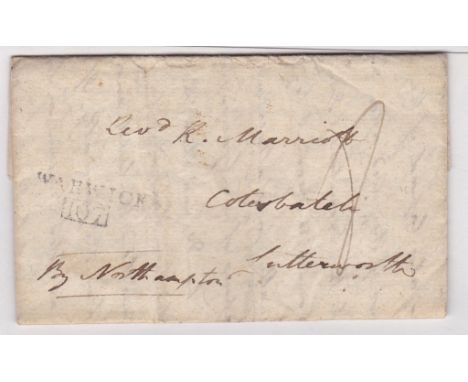 Revd R. Marriott
Cotesbatch
WARWICK
Lutterworth
By Northampton